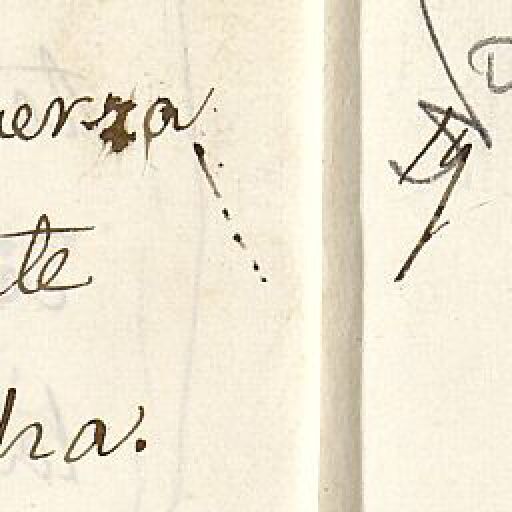 uerza
te
ha.
D